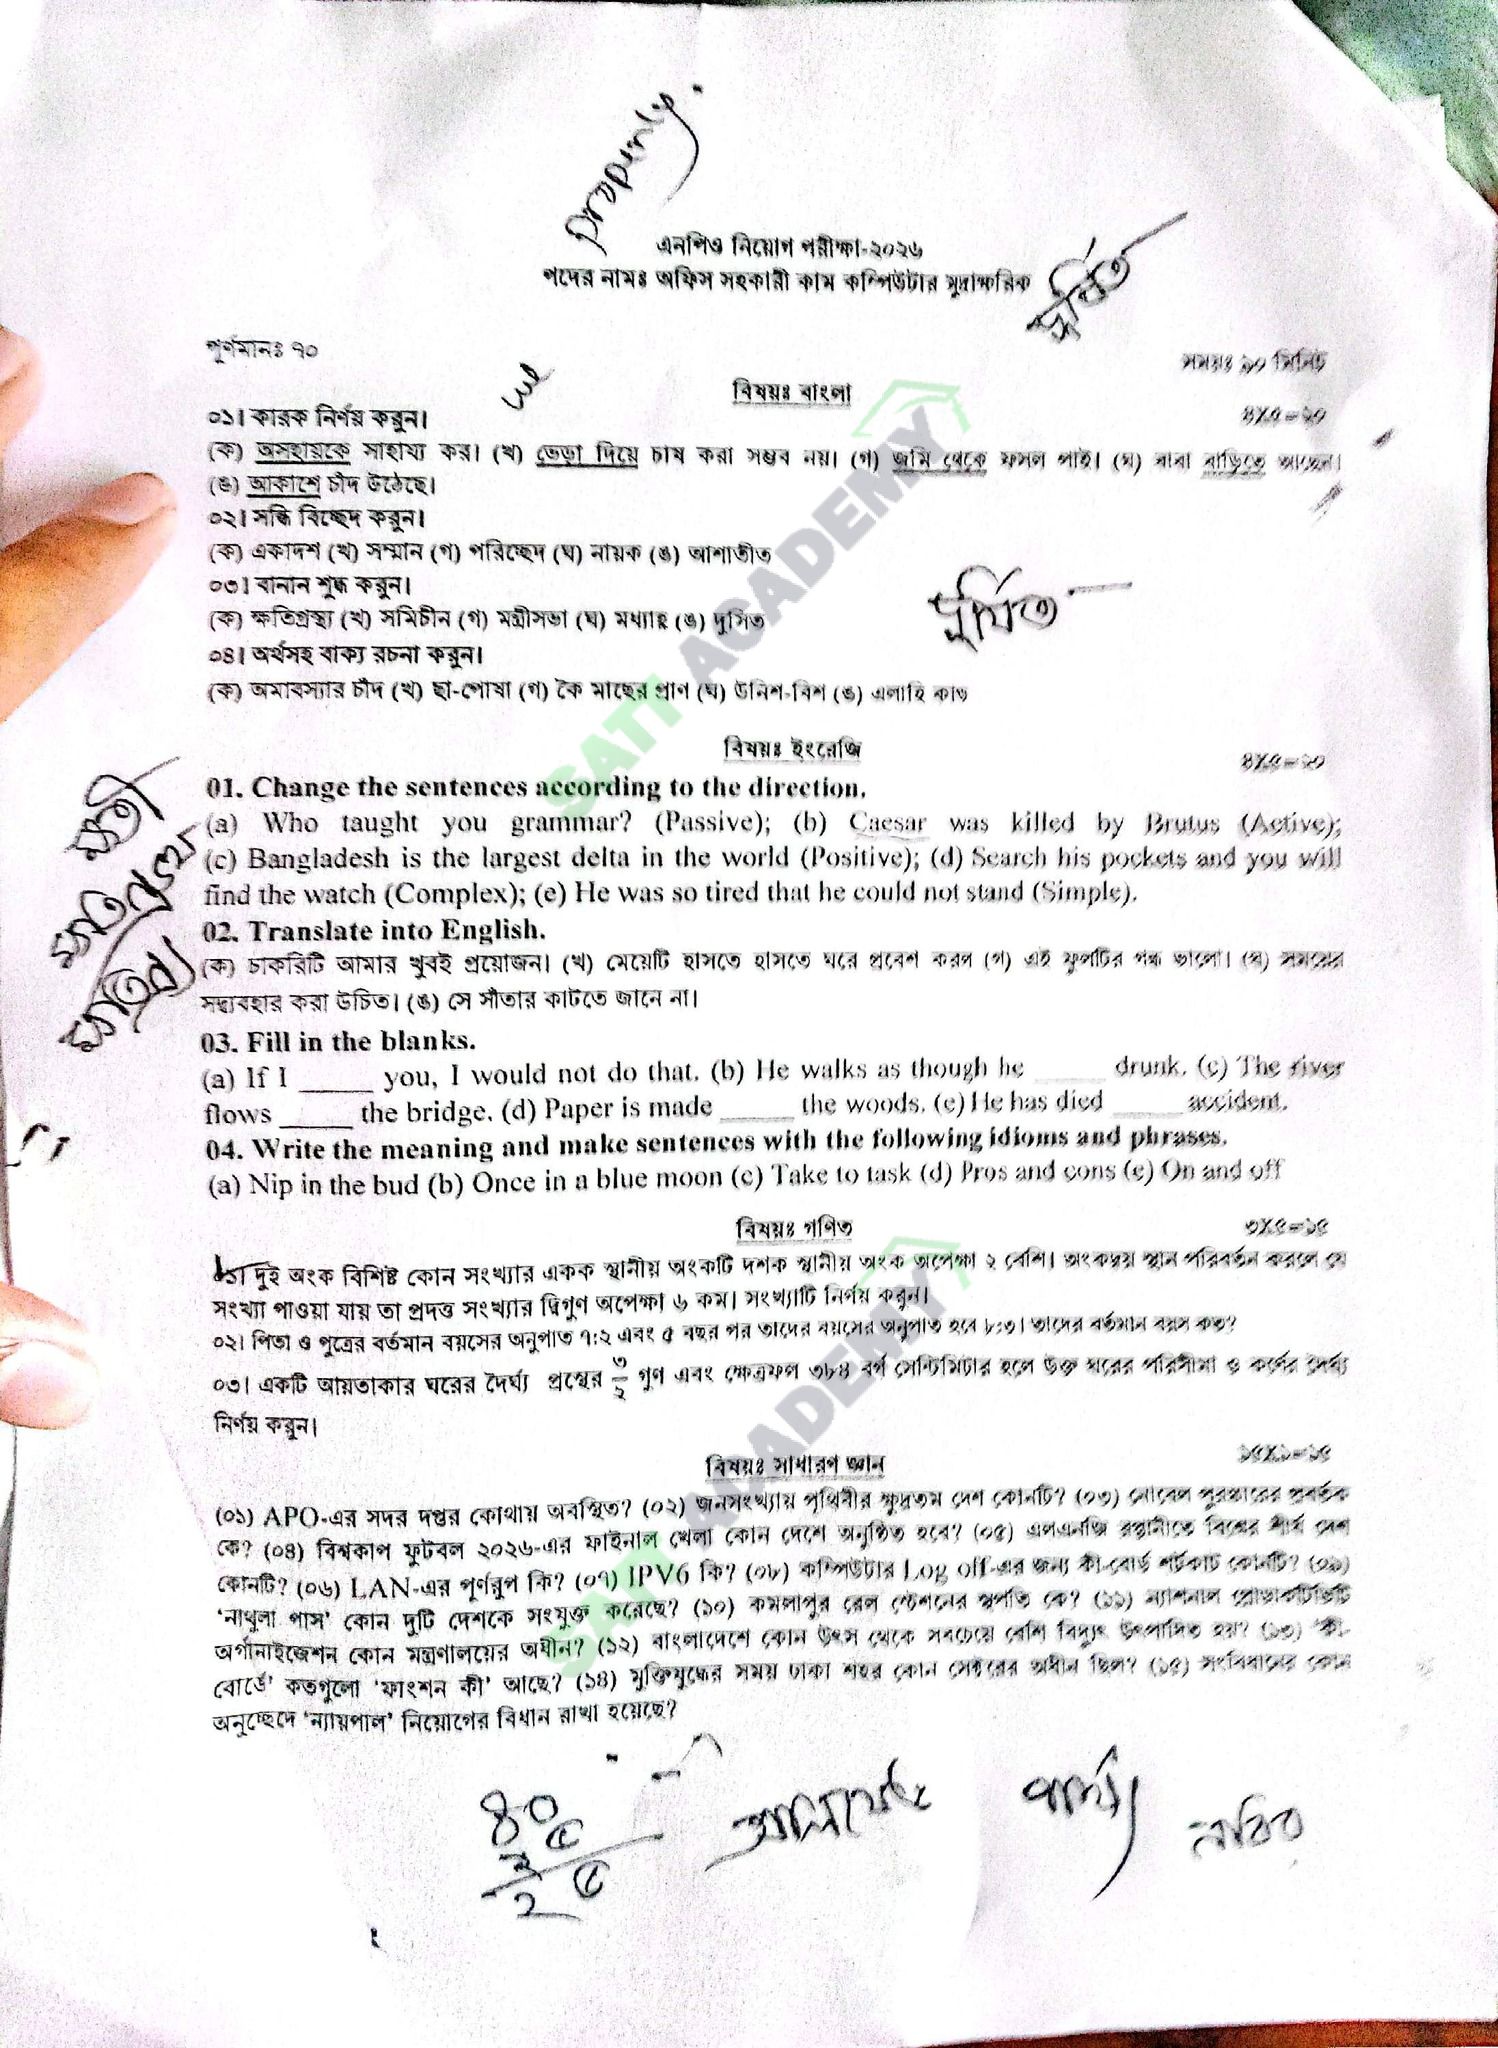 Properly.
এনপিও নিয়োগ পরীক্ষা-২০২৬
পদের নামঃ অফিস সহকারী কাম কম্পিউটার মুদ্রাক্ষরিক
দূর্ষিত
পূর্ণমানঃ ৭০
সময়ঃ ৯০ মিনিট
বিষয়ঃ বাংলা
৪X৫=২০
০১। কারক নির্ণয় করুন।
(ক) অসহায়কে সাহায্য কর। (খ) ভেড়া দিয়ে চাষ করা সম্ভব নয়। (গ) জমি থেকে ফসল পাই। (ঘ) বাবা বাড়িতে আছেন।
(ঙ) আকাশে চাঁদ উঠেছে।
০২। সন্ধি বিচ্ছেদ করুন।
(ক) একাদশ (খ) সম্মান (গ) পরিচ্ছেদ (ঘ) নায়ক (ঙ) আশাতীত
০৩। বানান শুদ্ধ করুন।
(ক) ক্ষতিগ্রস্থ্য (খ) সমিচীন (গ) মন্ত্রীসভা (ঘ) মধ্যাহ্ন (ঙ) দুসিত
০৪। অর্থসহ বাক্য রচনা করুন।
(ক) অমাবস্যার চাঁদ (খ) ছা-পোষা (গ) কৈ মাছের প্রাণ (ঘ) উনিশ-বিশ (ঙ) এলাহি কান্ড
বিষয়ঃ ইংরেজি
৪X৫=২০
01. Change the sentences according to the direction.
(a) Who taught you grammar? (Passive); (b) Caesar was killed by Brutus (Active);
(c) Bangladesh is the largest delta in the world (Positive); (d) Search his pockets and you will
find the watch (Complex); (e) He was so tired that he could not stand (Simple).
02. Translate into English.
(ক) চাকরিটি আমার খুবই প্রয়োজন। (খ) মেয়েটি হাসতে হাসতে ঘরে প্রবেশ করল (গ) এই ফুলটির গন্ধ ভালো। (ঘ) সময়ের
সদ্ব্যবহার করা উচিত। (ঙ) সে সাঁতার কাটতে জানে না।
03. Fill in the blanks.
(a) If I _____ you, I would not do that. (b) He walks as though he _____ drunk. (c) The river
flows _____ the bridge. (d) Paper is made _____ the woods. (e) He has died _____ accident.
04. Write the meaning and make sentences with the following idioms and phrases.
(a) Nip in the bud (b) Once in a blue moon (c) Take to task (d) Pros and cons (e) On and off
বিষয়ঃ গণিত
৩X৫=১৫
০১। দুই অংক বিশিষ্ট কোন সংখ্যার একক স্থানীয় অংকটি দশক স্থানীয় অংক অপেক্ষা ২ বেশি। অংকদ্বয় স্থান পরিবর্তন করলে যে
সংখ্যা পাওয়া যায় তা প্রদত্ত সংখ্যার দ্বিগুণ অপেক্ষা ৬ কম। সংখ্যাটি নির্ণয় করুন।
০২। পিতা ও পুত্রের বর্তমান বয়সের অনুপাত ৭:২ এবং ৫ বছর পর তাদের বয়সের অনুপাত হবে ৮:৩। তাদের বর্তমান বয়স কত?
০৩। একটি আয়তাকার ঘরের দৈর্ঘ্য প্রস্থের ৩/২ গুণ এবং ক্ষেত্রফল ৩৮৪ বর্গ সেন্টিমিটার হলে উক্ত ঘরের পরিসীমা ও কর্ণের দৈর্ঘ্য
নির্ণয় করুন।
বিষয়ঃ সাধারণ জ্ঞান
১৫X১=১৫
(০১) APO-এর সদর দপ্তর কোথায় অবস্থিত? (০২) জনসংখ্যায় পৃথিবীর ক্ষুদ্রতম দেশ কোনটি? (০৩) নোবেল পুরস্কারের প্রবর্তক
কে? (০৪) বিশ্বকাপ ফুটবল ২০২৬-এর ফাইনাল খেলা কোন দেশে অনুষ্ঠিত হবে? (০৫) এলএনজি রপ্তানীতে বিশ্বের শীর্ষ দেশ
কোনটি? (০৬) LAN-এর পূর্ণরুপ কি? (০৭) IPV6 কি? (০৮) কম্পিউটার Log off-এর জন্য কী-বোর্ড শর্টকাট কোনটি? (০৯)
‘নাথুলা পাস’ কোন দুটি দেশকে সংযুক্ত করেছে? (১০) কমলাপুর রেল স্টেশনের স্থপতি কে? (১১) ন্যাশনাল প্রোডাকটিভিটি
অর্গানাইজেশন কোন মন্ত্রণালয়ের অধীন? (১২) বাংলাদেশে কোন উৎস থেকে সবচেয়ে বেশি বিদ্যুৎ উৎপাদিত হয়? (১৩) ‘কী-
বোর্ডে’ কতগুলো ‘ফাংশন কী’ আছে? (১৪) মুক্তিযুদ্ধের সময় ঢাকা শহর কোন সেক্টরের অধীন ছিল? (১৫) সংবিধানের কোন
অনুচ্ছেদে ‘ন্যায়পাল’ নিয়োগের বিধান রাখা হয়েছে?
SATI ACADEMY
SATI ACADEMY